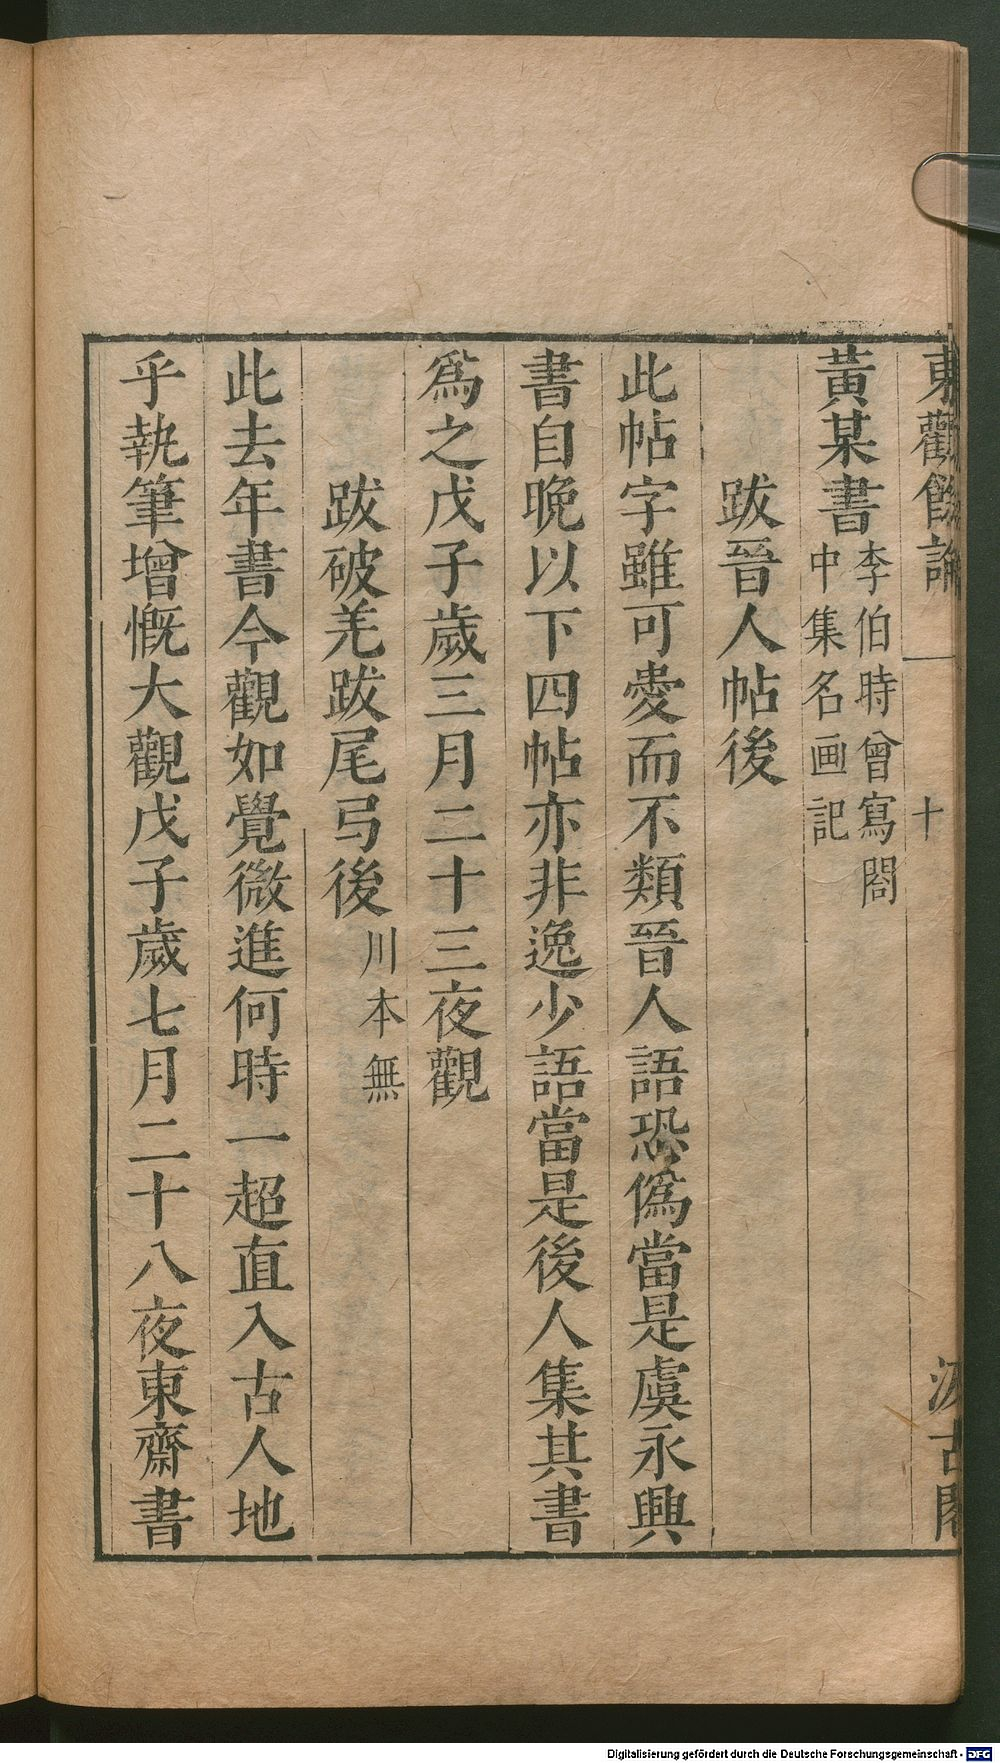 東觀餘論 十 汲古閣
黃某書李伯時曾寫閻
中集名画記
跋晉人帖後
此帖字雖可愛而不類晉人語恐僞當是虞永興
書自晚以下四帖亦非逸少語當是後人集其書
爲之戊子歲三月二十三夜觀
跋破羌跋尾弓後川本無
此去年書今觀如覺微進何時一超直入古人地
乎執筆增慨大觀戊子歲七月二十八夜東齋書
Digitalisierung gefördert durch die Deutsche Forschungsgemeinschaft - DFG